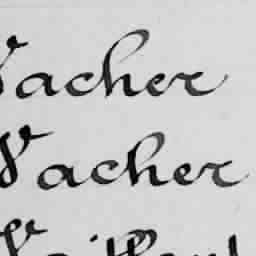 Vacher
Vacher